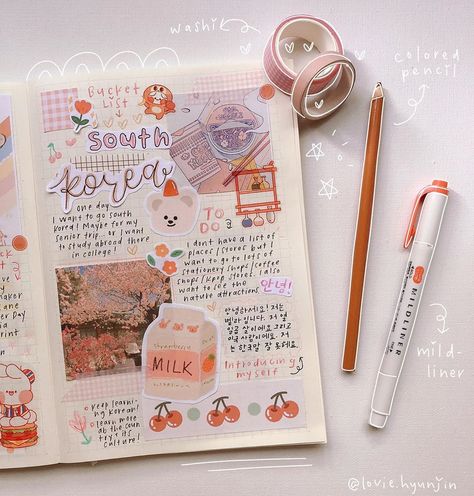 washi
colored
pencil
Bucket
List
South
Korea
one day
I want to go south
Korea! Maybe for my
senior trip... or I want
to study abroad there
in college!
TO
DO
I don't have a list of
places/stores but I
want to go to lots of
stationery shops/coffee
shops/kpop stores. I also
want to see the
nature attractions.
안녕!
안녕하세요! 저는
벨라입니다. 저 열
일곱 살이에요 그리고
미국사람이에요. 저
는 한국말 잘 못해요.
Introducing
myself
strawberry
MILK
keep learni-
ng Korean!
learn more
ab the coun-
try & its
culture!
MILDLINER
mild-
liner
@lovie.hyunjin